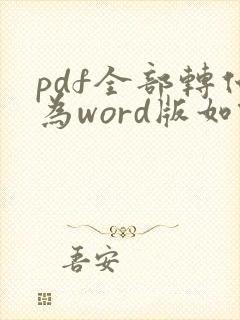 pdf全部轉
為word版如
吾安